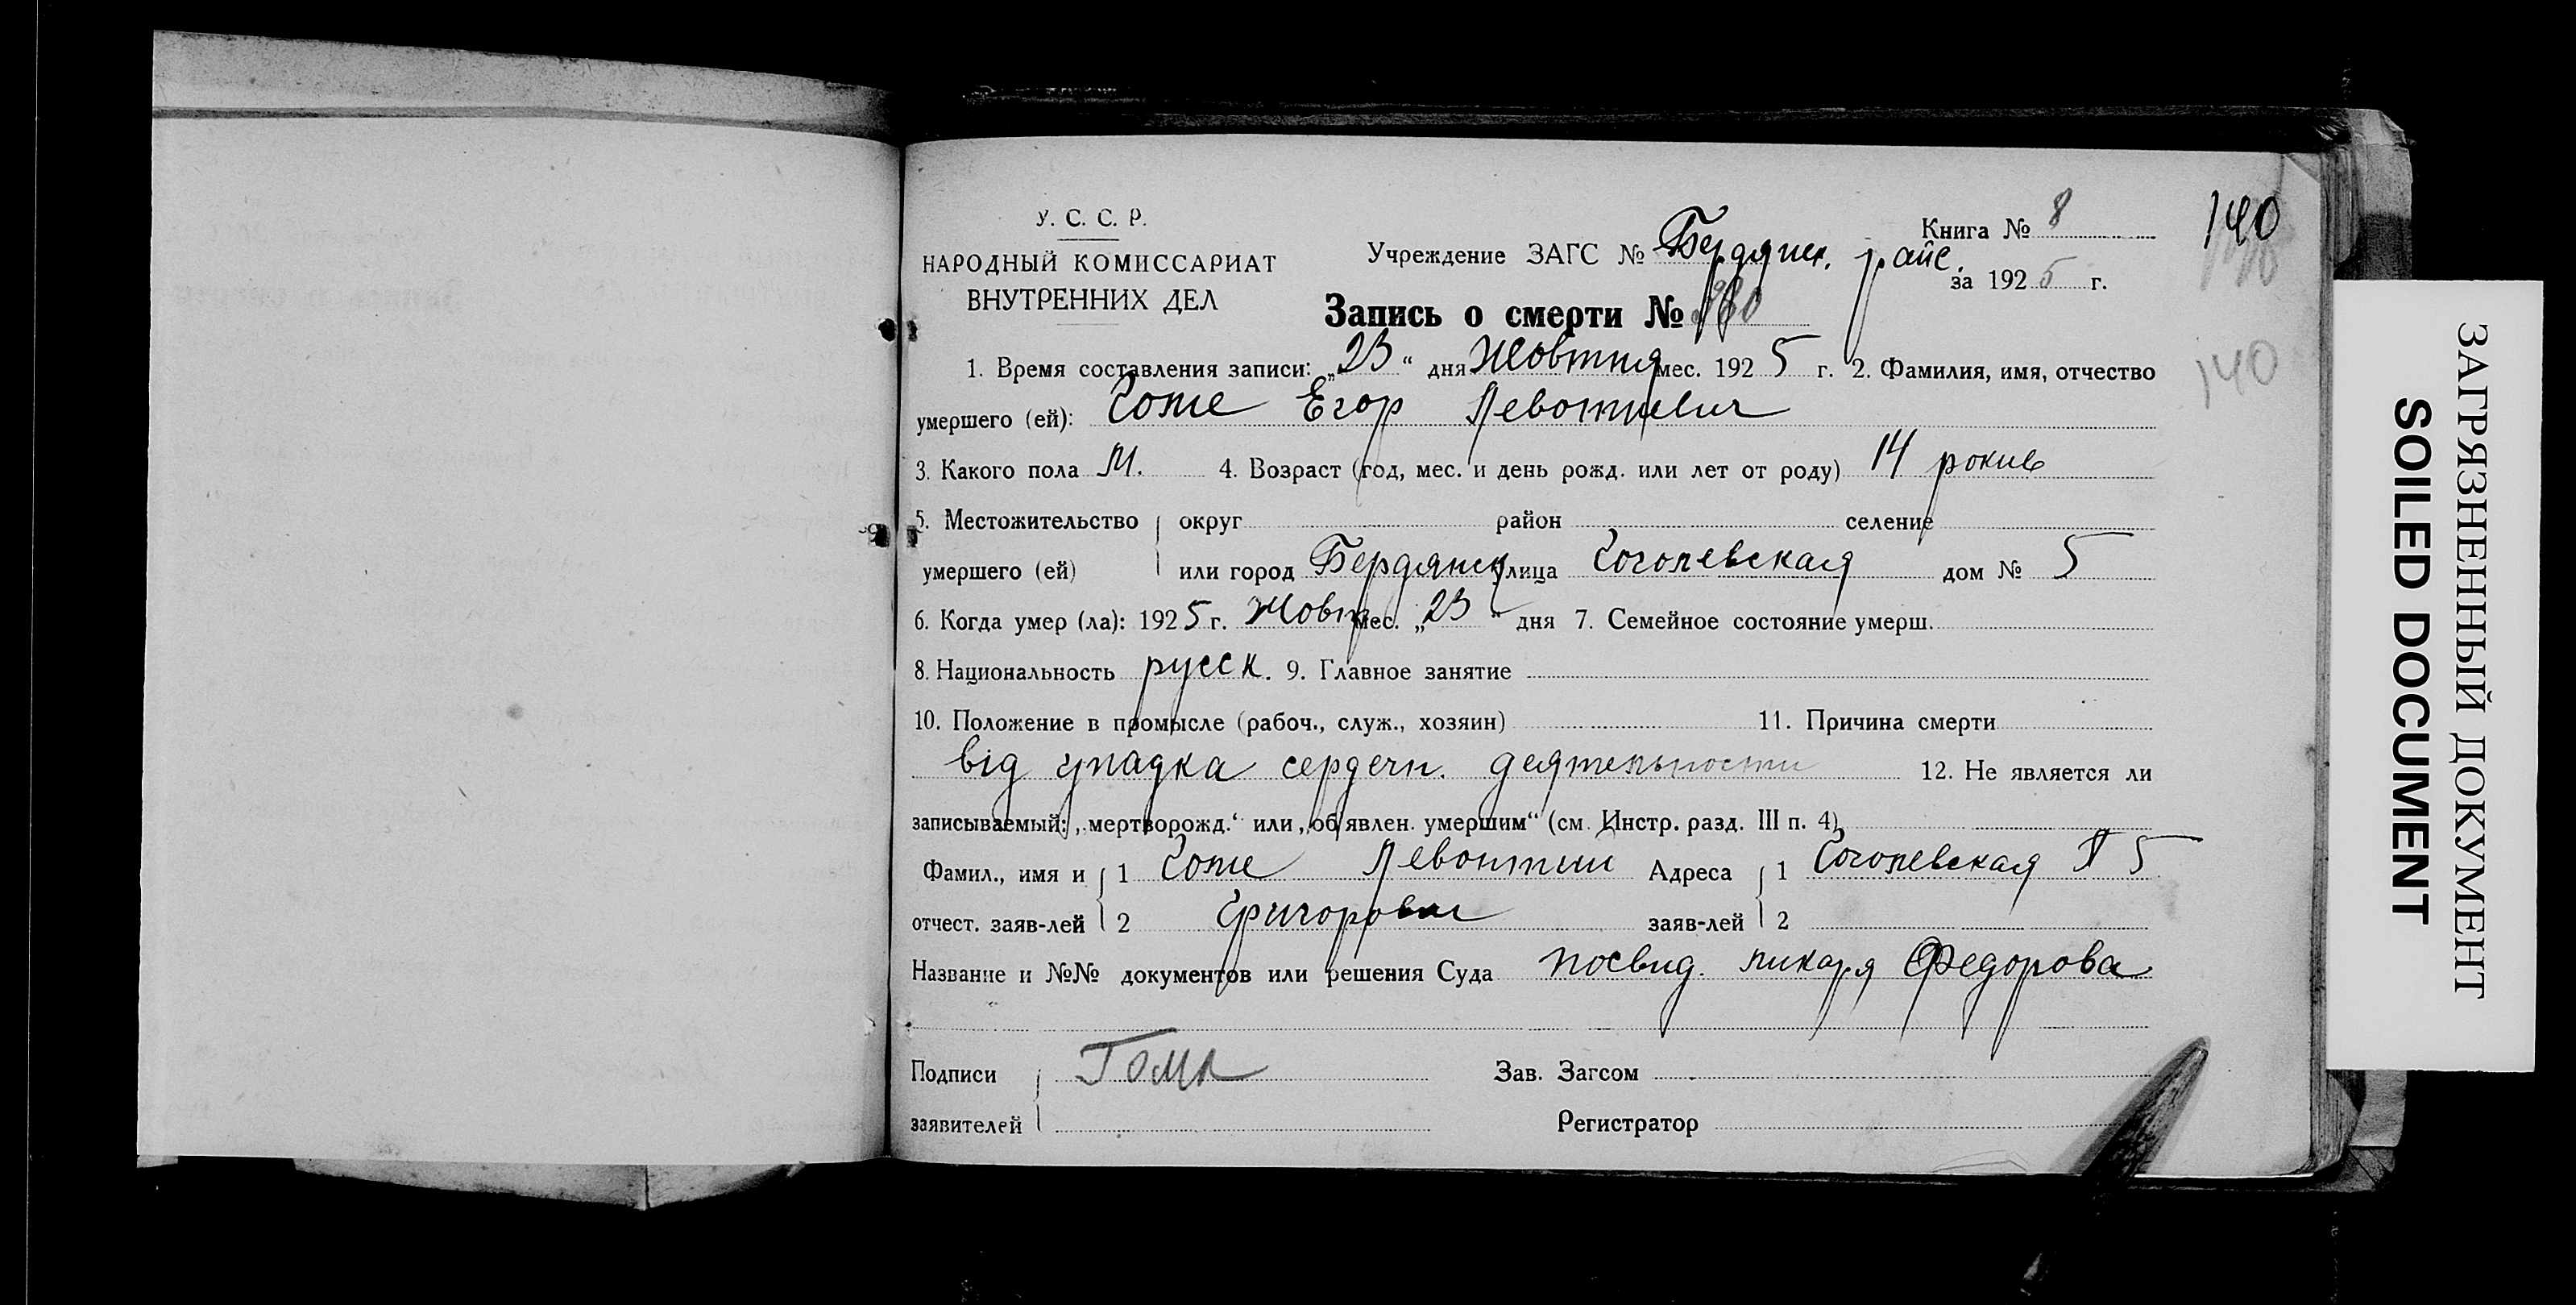 У. С. С. Р.
НАРОДНЫЙ КОМИССАРИАТ
ВНУТРЕННИХ ДЕЛ
Книга № 8
140
Учреждение ЗАГС № Бердянск. райс.
за 1925 г.
Запись о смерти № 980
140
1. Время составления записи: „23“ дня Жовтня мес. 1925 г. 2. Фамилия, имя, отчество
умершего (ей): Гоме Егор Левонтиевич
3. Какого пола М. 4. Возраст (год, мес. и день рожд. или лет от роду) 14 рокив
5. Местожительство округ район селение
умершего (ей) или город Бердянск улица Гоголевская дом № 5
6. Когда умер (ла): 1925 г. Жовт. мес. „23“ дня 7. Семейное состояние умерш.
8. Национальность русск. 9. Главное занятие
10. Положение в промысле (рабоч., служ., хозяин) 11. Причина смерти
від упадка сердечн. деятельности 12. Не является ли
записываемый: „мертворожд.“ или „об'явлен. умершим“ (см. Инстр. разд. III п. 4)
Фамил., имя и 1 Гоме Левонтий Адреса 1 Гоголевская № 5
отчест. заяв-лей 2 Григорович заяв-лей 2
Название и №№ документов или решения Суда посвид. ликаря Федорова
Подписи Гома Зав. Загсом
заявителей Регистратор
ЗАГРЯЗНЕННЫЙ ДОКУМЕНТ
SOILED DOCUMENT